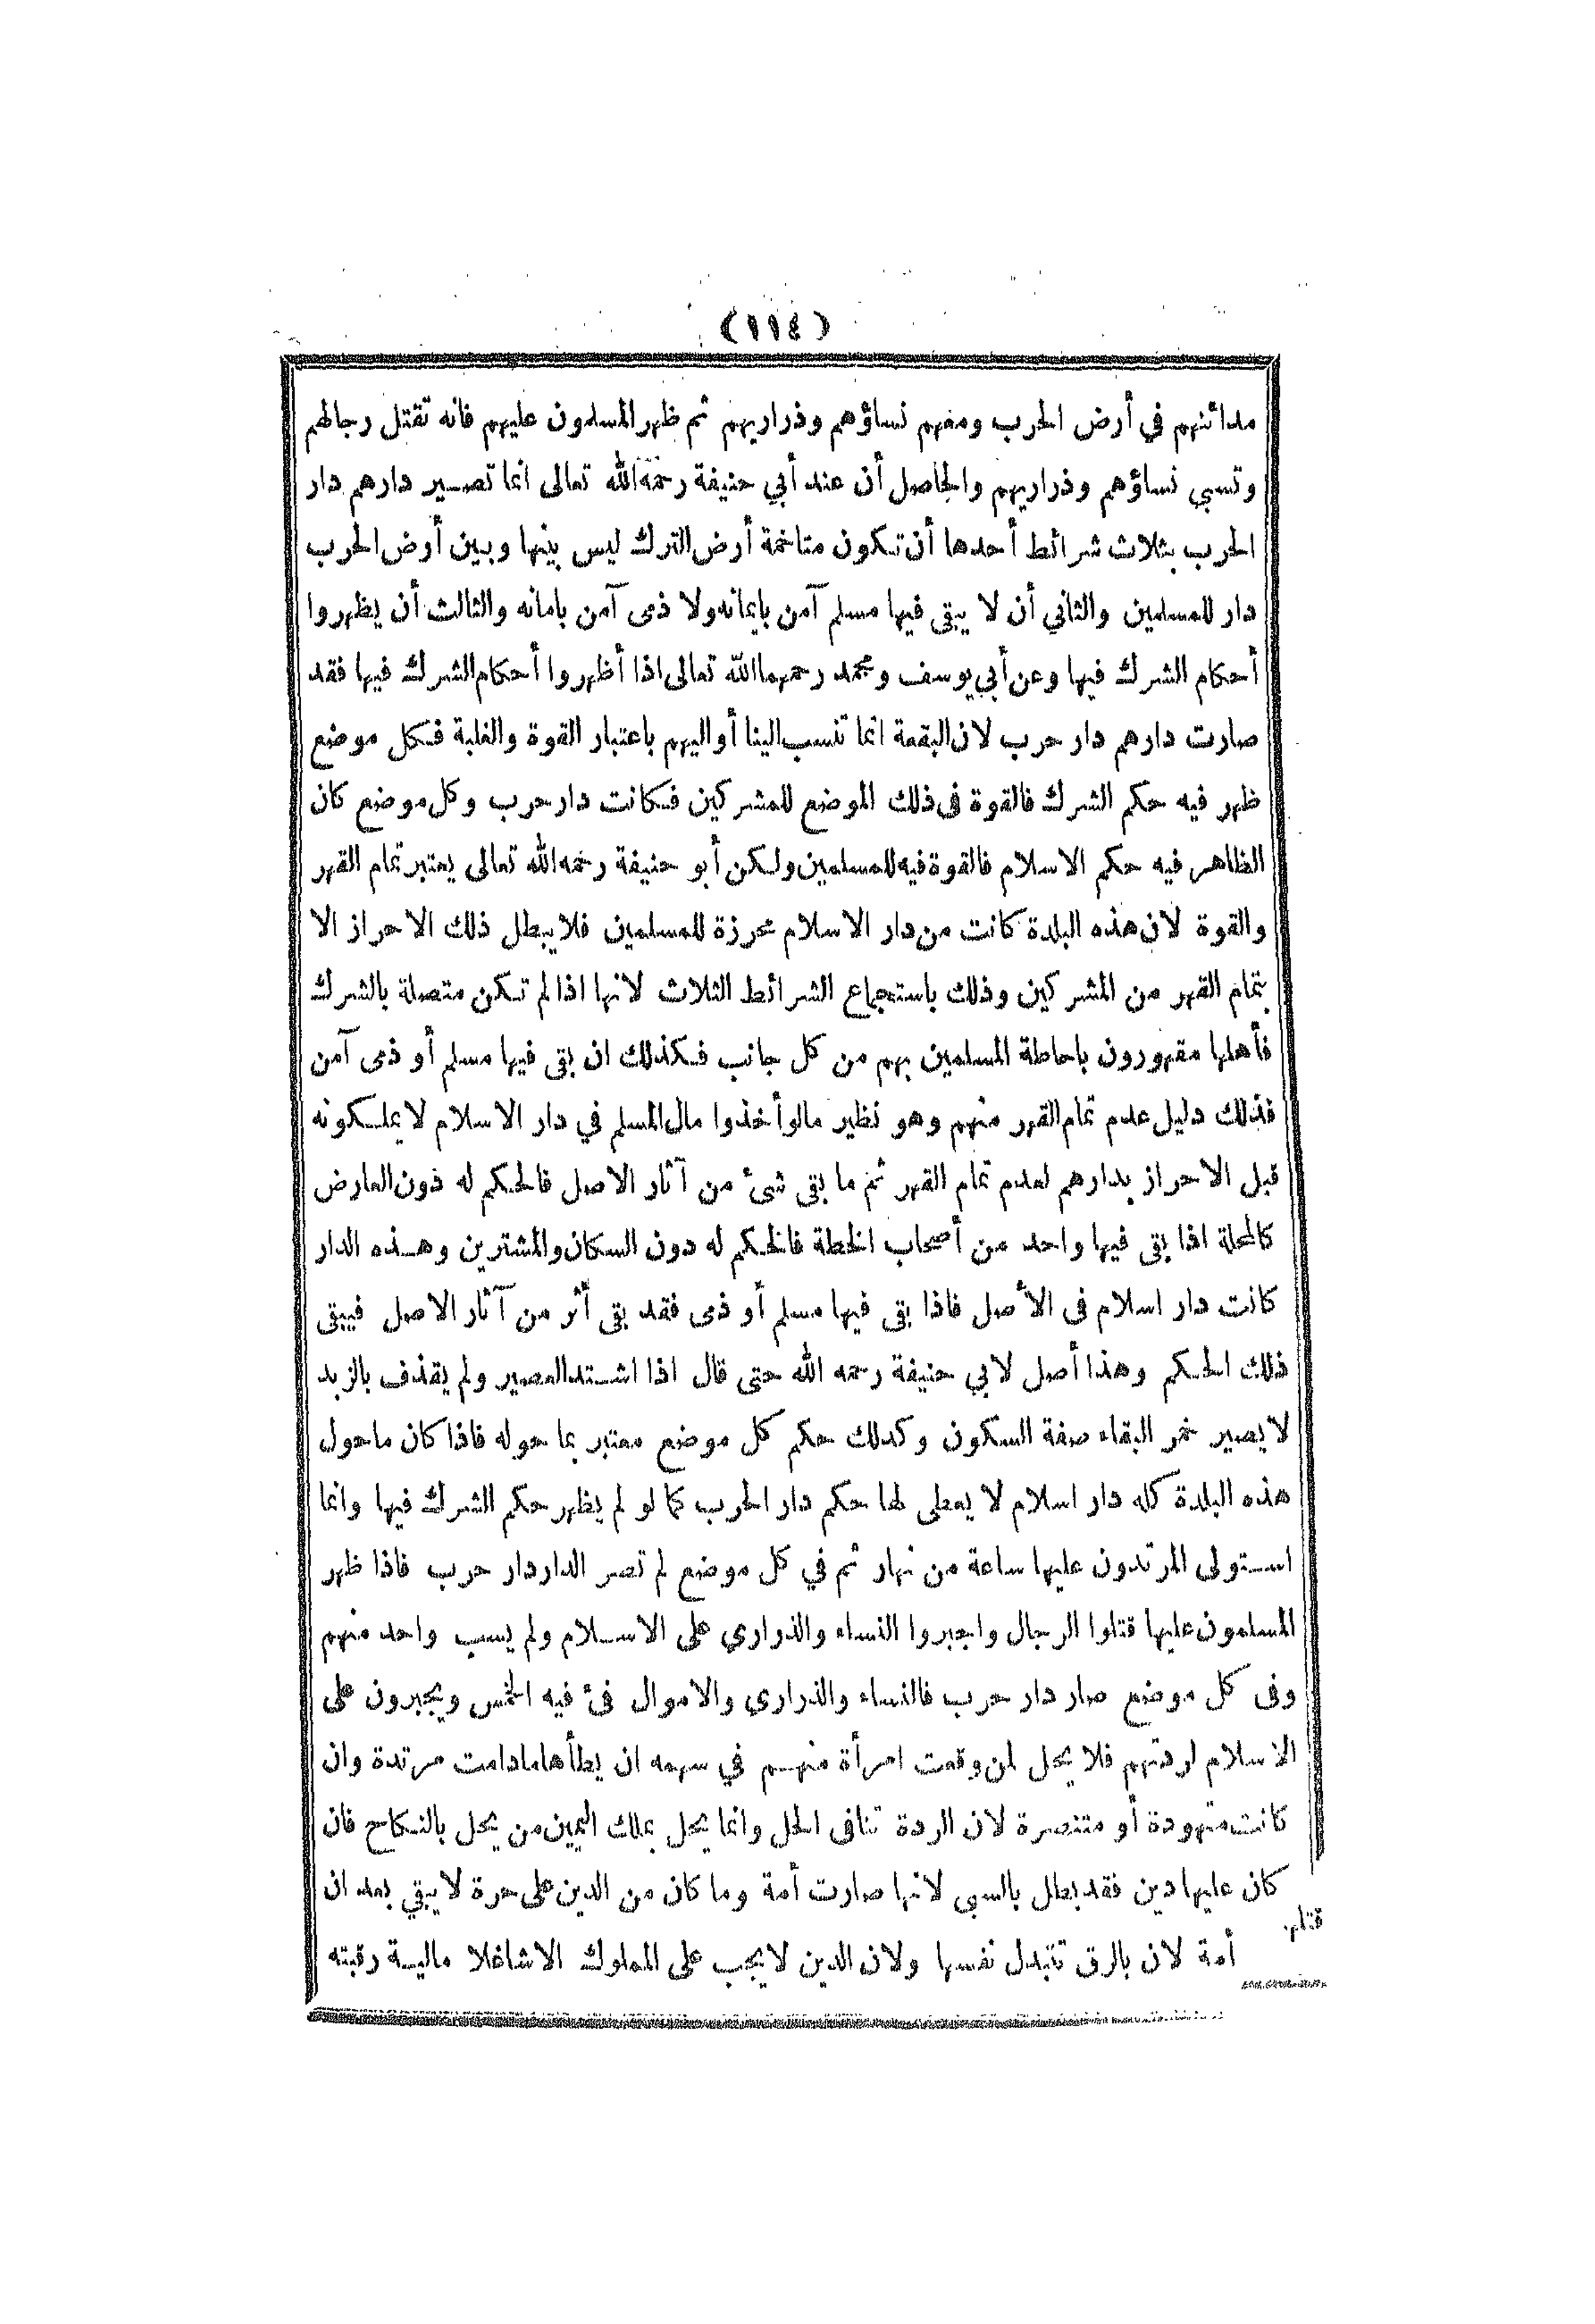 (١١٤)
مدائنهم في أرض الحرب ومعهم نساؤهم وذراريهم ثم ظهر المسلمون عليهم فانه تقتل رجالهم
وتسبي نساؤهم وذراريهم والحاصل أن عند أبي حنيفة رحمه الله تعالى انما تصير دارهم دار
الحرب بثلاث شرائط أحدها أن تكون متاخمة أرض الترك ليس بينها وبين أرض الحرب
دار للمسلمين والثاني أن لا يبقى فيها مسلم آمن بايمانه ولا ذمى آمن بامانه والثالث أن يظهروا
أحكام الشرك فيها وعن أبي يوسف ومحمد رحمهما الله تعالى اذا أظهروا أحكام الشرك فيها فقد
صارت دارهم دار حرب لان البقعة انما تنسب الينا أو اليهم باعتبار القوة والغلبة فكل موضع
ظهر فيه حكم الشرك فالقوة في ذلك الموضع للمشركين فكانت دار حرب وكل موضع كان
الظاهر فيه حكم الاسلام فالقوة فيه للمسلمين ولكن أبو حنيفة رحمه الله تعالى يعتبر تمام القهر
والقوة لان هذه البلدة كانت من دار الاسلام محرزة للمسلمين فلا يبطل ذلك الاحراز الا
بتمام القهر من المشركين وذلك باستجماع الشرائط الثلاث لانها اذا لم تكن متصلة بالشرك
فأهلها مقهورون باحاطة المسلمين بهم من كل جانب فكذلك ان بقى فيها مسلم أو ذمى آمن
فذلك دليل عدم تمام القهر منهم وهو نظير مالو أخذوا مال المسلم في دار الاسلام لا يملكونه
قبل الاحراز بدارهم لعدم تمام القهر ثم ما بقى شئ من آثار الاصل فالحكم له دون العارض
كالمحلة اذا بقى فيها واحد من أصحاب الخطة فالحكم له دون السكان والمشترين وهذه الدار
كانت دار اسلام فى الأصل فاذا بقى فيها مسلم أو ذمى فقد بقى أثر من آثار الاصل فيبقى
ذلك الحكم وهذا أصل لابي حنيفة رحمه الله حتى قال اذا اشتد العصير ولم يقذف بالزبد
لا يصير خمر البقاء صفة السكون وكدلك حكم كل موضع معتبر بما حوله فاذا كان ما حول
هذه البلدة كله دار اسلام لا يعطى لها حكم دار الحرب كما لو لم يظهر حكم الشرك فيها وانما
استولى المرتدون عليها ساعة من نهار ثم في كل موضع لم تصر الدار دار حرب فاذا ظهر
المسلمون عليها قتلوا الرجال واجبروا النساء والذراري على الاسلام ولم يسب واحد منهم
وفى كل موضع صار دار حرب فالنساء والذراري والاموال فئ فيه الخمس ويجبرون على
الاسلام لردتهم فلا يحل لمن وقعت امرأة منهم في سهمه ان يطأها مادامت مرتدة وان
كانت متهودة أو متنصرة لان الردة تنافى الحل وانما يحل بملك اليمين من يحل بالنكاح فان
كان عليها دين فقد بطل بالسبى لانها صارت أمة وما كان من الدين على حرة لا يبقي بعد ان
أمة لان بالرق تتبدل نفسها ولان الدين لا يجب على المملوك الا شاغلا مالية رقبته